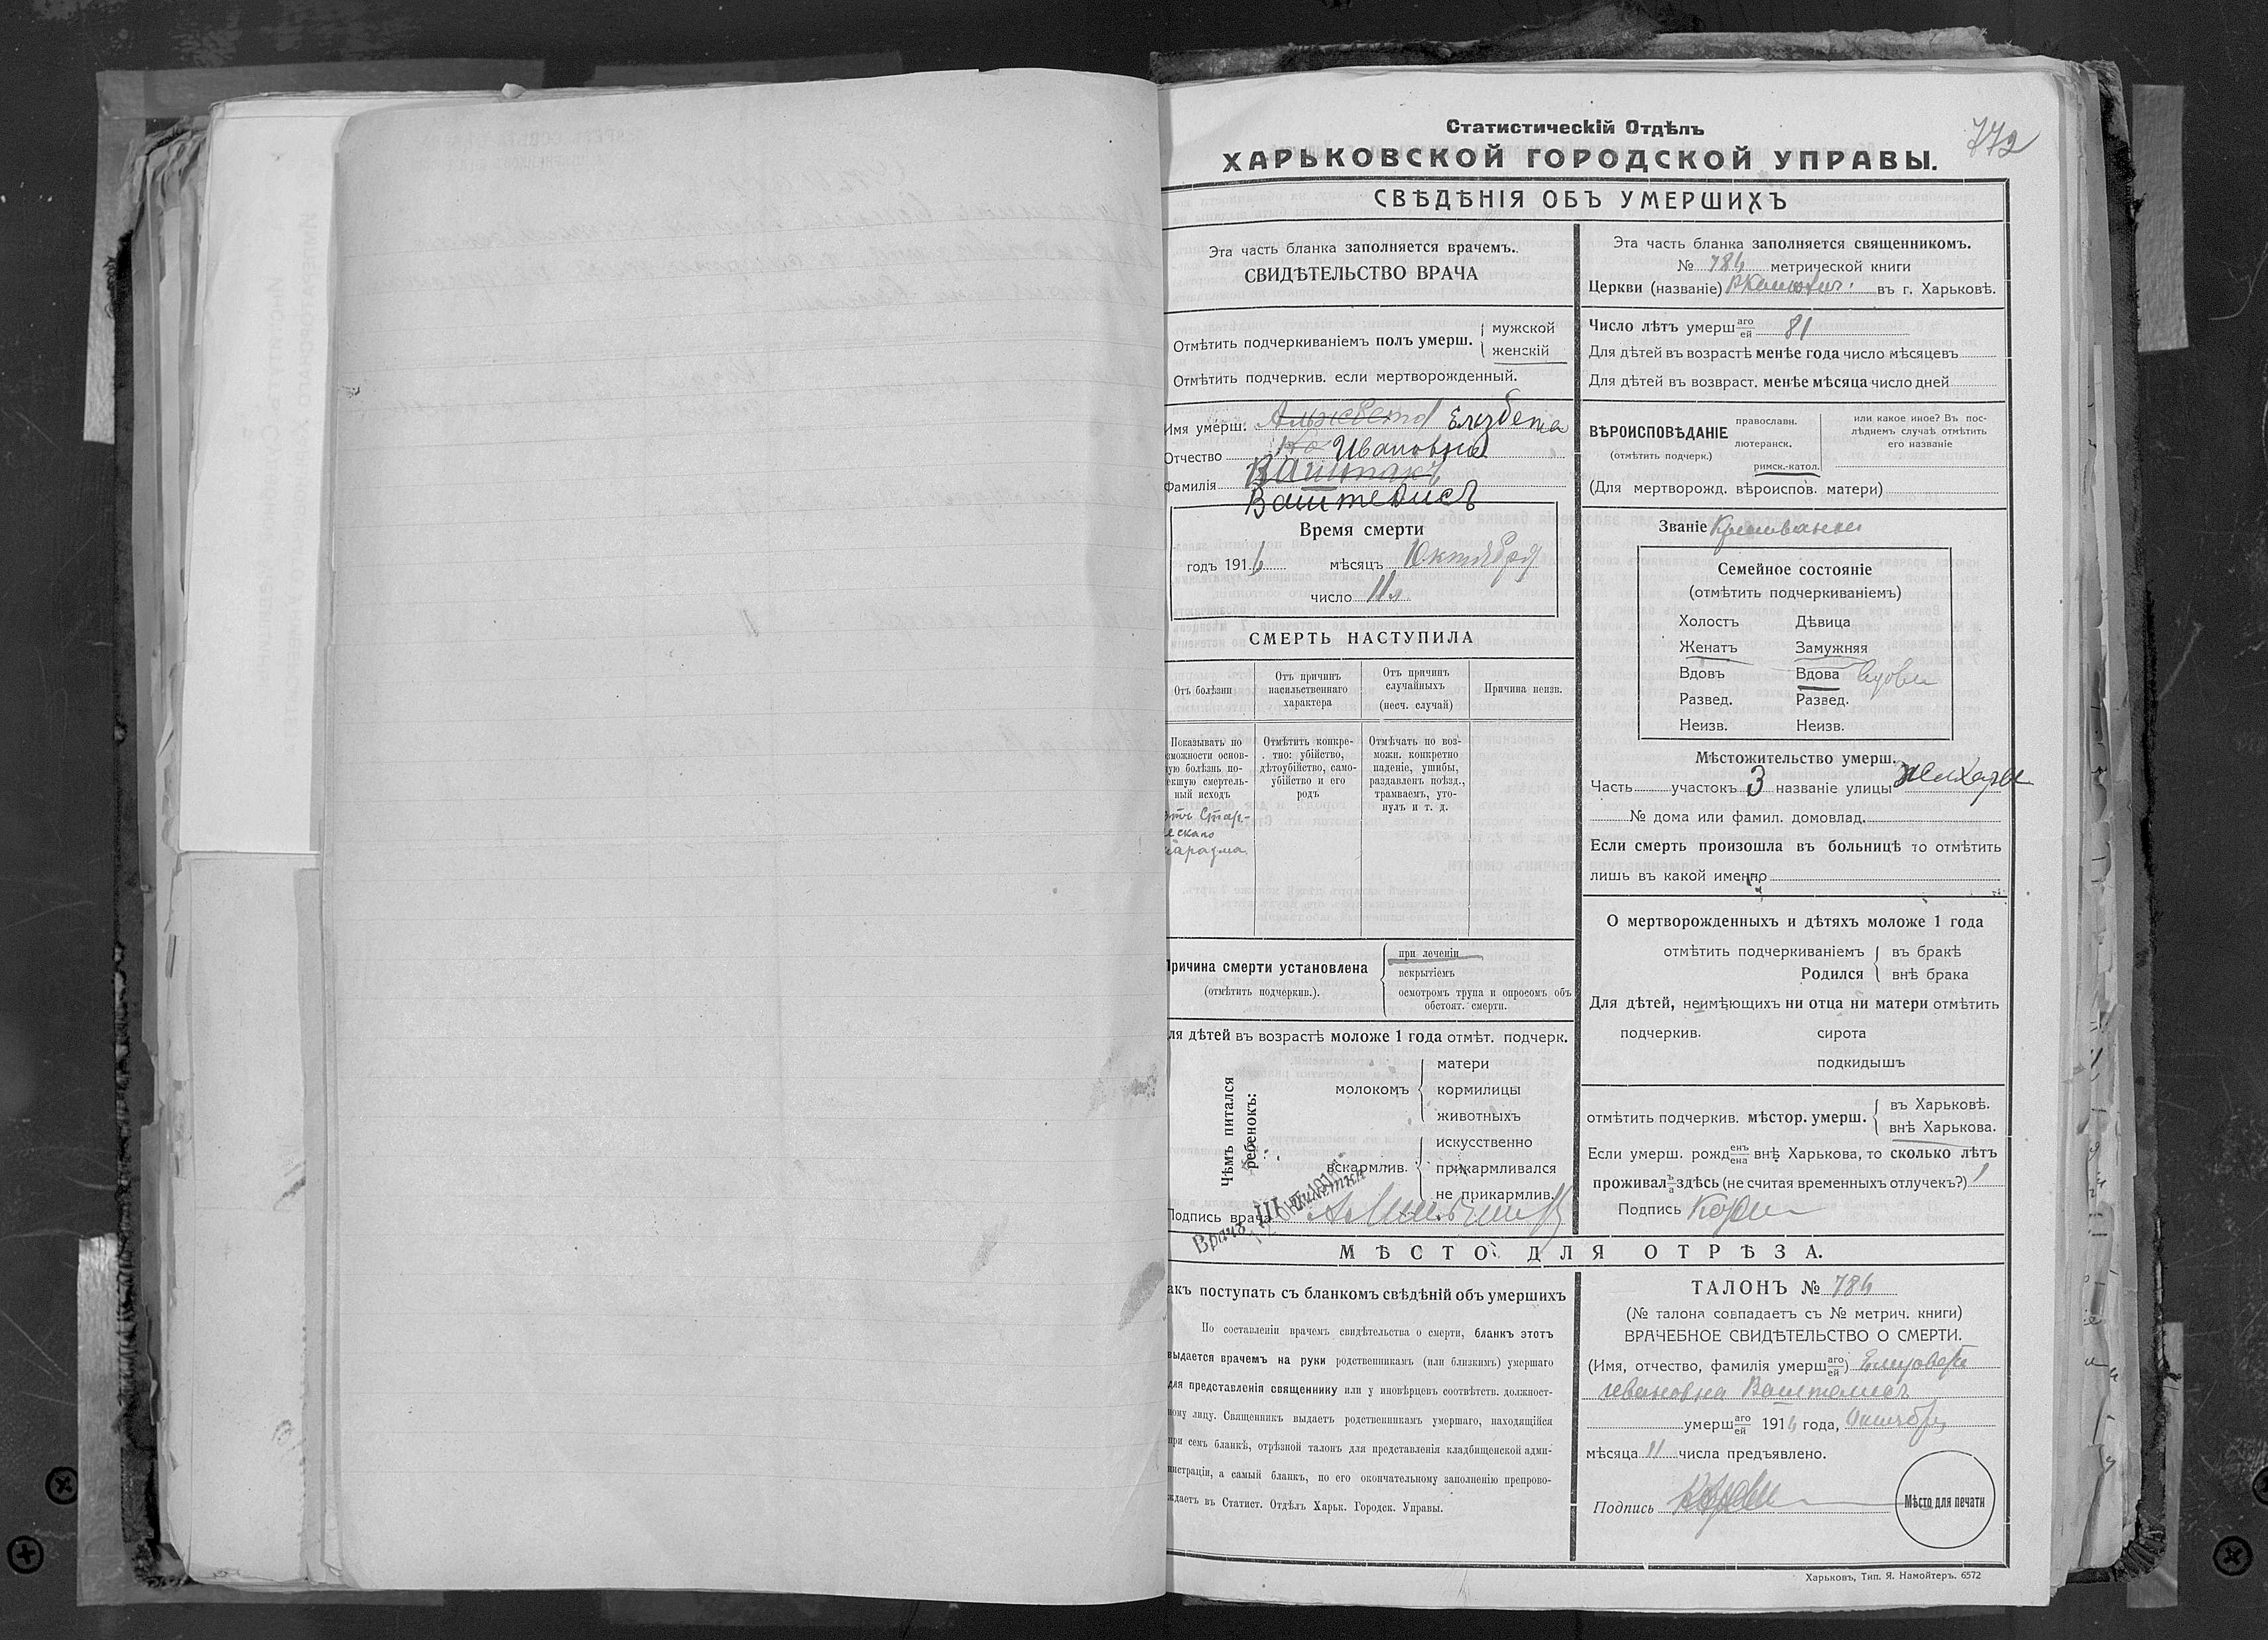 772
Статистическій Отдѣлъ
ХАРЬКОВСКОЙ ГОРОДСКОЙ УПРАВЫ.
СВѢДѢНІЯ ОБЪ УМЕРШИХЪ
Эта часть бланка заполняется врачемъ.
СВИДѢТЕЛЬСТВО ВРАЧА
Отмѣтить подчеркиваніемъ полъ умерш. мужской
женскій
Отмѣтить подчеркив. если мертворожденный.
Имя умерш. Альжбета Елзбета
Отчество Ивановна
Фамилія
Ваштелисъ
Время смерти
годъ 1916 мѣсяцъ Октября
число 11
СМЕРТЬ НАСТУПИЛА
Отъ болѣзни
Отъ причинъ
насильственнаго
характера
Отъ причинъ
случайныхъ
(несч. случай)
Причина неизв.
Показывать по
зможности основ-
ую болѣзнь по-
екшую смертель-
ный исходъ
Отмѣтить конкре-
тно: убійство,
дѣтоубійство, само-
убійство и его
родъ
Отмѣчать по воз-
можн. конкретно
паденіе, ушибы,
раздавленъ поѣзд.,
трамваемъ, уто-
нулъ и т. д.
отъ Стар-
ескаго
маразма
Причина смерти установлена
(отмѣтить подчеркив.).
при леченіи
вскрытіемъ
осмотромъ трупа и опросомъ объ
обстоят. смерти.
ля дѣтей въ возрастѣ моложе 1 года отмѣт. подчерк.
Чѣмъ питался
ребенокъ:
молокомъ
матери
кормилицы
животныхъ
вскармлив.
искусственно
прикармливался
не прикармлив.
Подпись врача
Врачъ III
Эта часть бланка заполняется священникомъ.
№ 786 метрической книги
Церкви (названіе) въ г. Харьковѣ.
Число лѣтъ умершаго/ей 81
Для дѣтей въ возрастѣ менѣе года число мѣсяцевъ
Для дѣтей въ возвраст. менѣе мѣсяца число дней
ВѢРОИСПОВѢДАНІЕ
(отмѣтить подчерк.)
православн.
лютеранск.
римск.-катол.
или какое иное? Въ пос-
лѣднемъ случаѣ отмѣтить
его названіе
(Для мертворожд. вѣроиспов. матери)
Званіе Крестьянки
Семейное состояніе
(отмѣтить подчеркиваніемъ)
Холостъ Дѣвица
Женатъ Замужняя
Вдовъ Вдова вдова
Развед. Развед.
Неизв. Неизв.
Мѣстожительство умерш.
Часть участокъ 3 названіе улицы
№ дома или фамил. домовлад.
Если смерть произошла въ больницѣ то отмѣтить
лишь въ какой именно
О мертворожденныхъ и дѣтяхъ моложе 1 года
отмѣтить подчеркиваніемъ въ бракѣ
Родился внѣ брака
Для дѣтей, неимѣющихъ ни отца ни матери отмѣтить
подчеркив. сирота
подкидышъ
отмѣтить подчеркив. мѣстор. умерш. въ Харьковѣ.
внѣ Харькова.
Если умерш. рожденъ/ена внѣ Харькова, то сколько лѣтъ
проживалъ/а здѣсь (не считая временныхъ отлучекъ?) 1
Подпись
МѢСТО ДЛЯ ОТРѢЗА.
акъ поступать съ бланкомъ свѣдѣній объ умершихъ
По составленіи врачемъ свидѣтельства о смерти, бланкъ этотъ
выдается врачемъ на руки родственникамъ (или близкимъ) умершаго
для представленія священнику или у иновѣрцевъ соотвѣтств. должност-
ному лицу. Священникъ выдаетъ родственникамъ умершаго, находящійся
при семъ бланкѣ, отрѣзной талонъ для представленія кладбищенской адми-
нистраціи, а самый бланкъ, по его окончательному заполненію препрово-
ждаетъ въ Статист. Отдѣлъ Харьк. Городск. Управы.
ТАЛОНЪ № 786
(№ талона совпадаетъ съ № метрич. книги)
ВРАЧЕБНОЕ СВИДѢТЕЛЬСТВО О СМЕРТИ.
(Имя, отчество, фамилія умершаго/ей) Елизавета
Ивановна Ваштелисъ
умершаго/ей 1916 года, Октября
мѣсяца 11 числа предъявлено.
Подпись
Мѣсто для печати
Харьковъ, Тип. Я. Намойтеръ. 6572